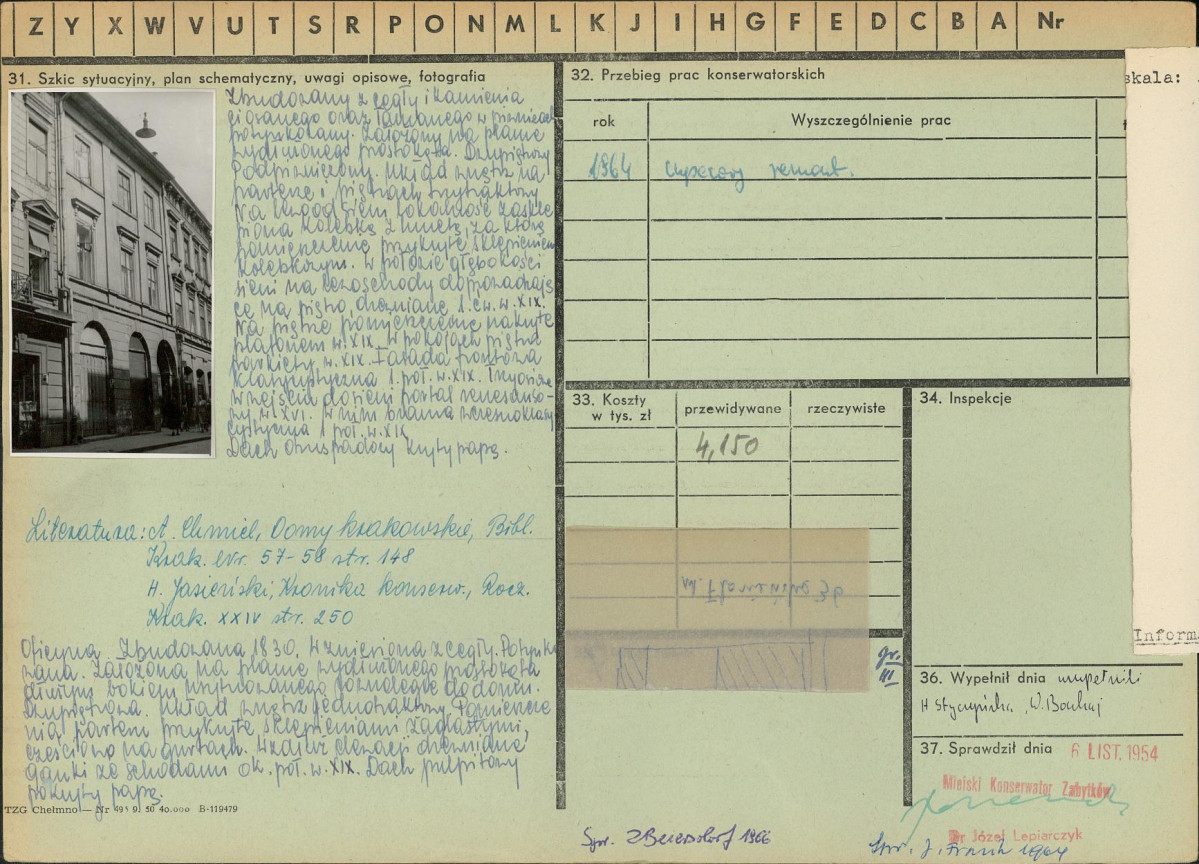 Z Y X W V U T S R P O N M L K J I H G F E D C B A Nr
31. Szkic sytuacyjny, plan schematyczny, uwagi opisowe, fotografia
Zbudowany z cegły i kamienia
ciosanego oraz łamanego w piwnicach
potynkowany. Założony na planie
wydłużonego prostokąta. Dwupiętrowy
Podpiwniczony. Układ wnętrz na
parterze i piętrach trzytraktowy
Na
piona kolebką z lunetą, za którą
pomieszczenie przykryte sklepieniem
kolebkowym. W połowie głębokości
sieni na
ce na piętro, drewniane 1. ćw. w. XIX.
Na piętrze pomieszczenie nakryte
plafonem w. XIX. W pokojach piętra
parkiety w. XIX. Fasada frontowa
klasycystyczna 1. poł. w. XIX.
wejścia do sieni portal renesanso-
wy w. XVI. W nim brama wczesnoklasy
cystyczna 1 poł. w. XIX
Dach dwuspadowy kryty papą.
Literatura: A. Chmiel, Domy krakowskie, Bibl.
Krak. Nr. 57-58 str. 148
H. Jasieński, Kronika konserw., Rocz.
Krak. XXIV str. 250
Oficyna. Zbudowana 1830. Wzniesiona z cegły. Potynko
wana. Założona na planie wydłużonego prostokąta
dłuższym bokiem usytuowanego równolegle do domu.
Dwupiętrowa. Układ wnętrz jednotraktowy. Pomieszcze
nia parteru przykryte sklepieniami żaglastymi,
częściowo na gurtach. Wzdłuż elewacji drewniane
ganki ze schodami ok. poł. w. XIX. Dach pulpitowy
pokryty papą.
TZG Chełmno — Nr 495 9. 50 40.000 B-119479
32. Przebieg prac konserwatorskich
rok Wyszczególnienie prac
1964 remont.
33. Koszty
w tys. zł
przewidywane rzeczywiste
4,150
ul. Floriańska 36
gr.
III
Spr. 1966
34. Inspekcje
skala:
Inform
36. Wypełnił dnia wypełnili
H Stycznińska, W.
37. Sprawdził dnia 6 LIST. 1954
Miejski Konserwator Zabytków
Dr Józef Lepiarczyk
Spr. J. 1964